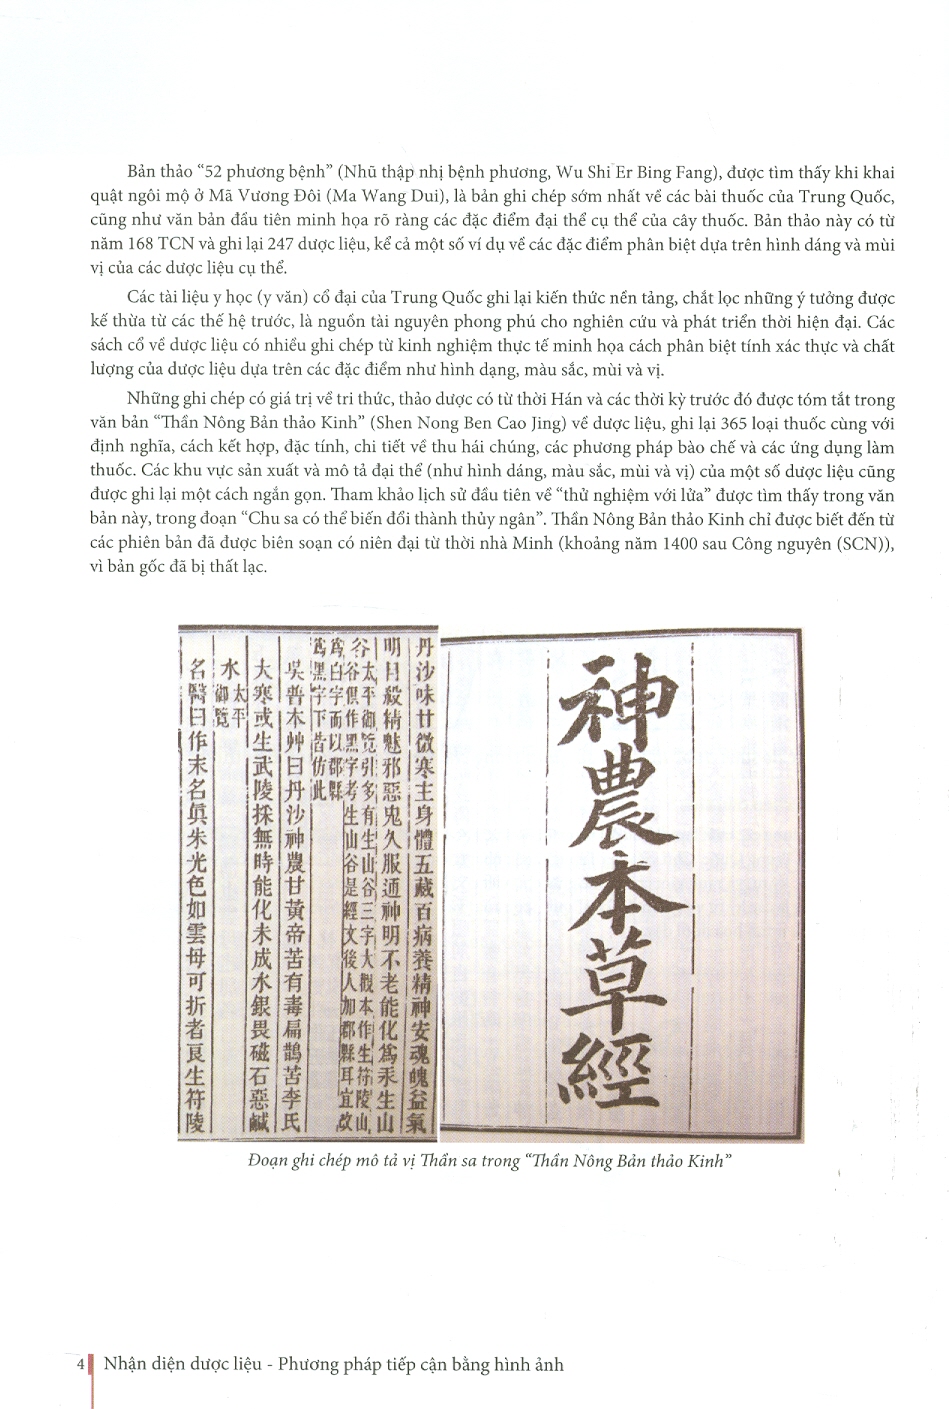 Bản thảo “52 phương bệnh” (Nhũ thập nhị bệnh phương, Wu Shi Er Bing Fang), được tìm thấy khi khai
quật ngôi mộ ở Mã Vương Đôi (Ma Wang Dui), là bản ghi chép sớm nhất về các bài thuốc của Trung Quốc,
cũng như văn bản đầu tiên minh họa rõ ràng các đặc điểm đại thể cụ thể của cây thuốc. Bản thảo này có từ
năm 168 TCN và ghi lại 247 dược liệu, kể cả một số ví dụ về các đặc điểm phân biệt dựa trên hình dáng và mùi
vị của các dược liệu cụ thể.
Các tài liệu y học (y văn) cổ đại của Trung Quốc ghi lại kiến thức nền tảng, chắt lọc những ý tưởng được
kế thừa từ các thế hệ trước, là nguồn tài nguyên phong phú cho nghiên cứu và phát triển thời hiện đại. Các
sách cổ về dược liệu có nhiều ghi chép từ kinh nghiệm thực tế minh họa cách phân biệt tính xác thực và chất
lượng của dược liệu dựa trên các đặc điểm như hình dạng, màu sắc, mùi và vị.
Những ghi chép có giá trị về tri thức, thảo dược có từ thời Hán và các thời kỳ trước đó được tóm tắt trong
văn bản “Thần Nông Bản thảo Kinh” (Shen Nong Ben Cao Jing) về dược liệu, ghi lại 365 loại thuốc cùng với
định nghĩa, cách kết hợp, đặc tính, chi tiết về thu hái chúng, các phương pháp bào chế và các ứng dụng làm
thuốc. Các khu vực sản xuất và mô tả đại thể (như hình dáng, màu sắc, mùi và vị) của một số dược liệu cũng
được ghi lại một cách ngắn gọn. Tham khảo lịch sử đầu tiên về “thử nghiệm với lửa” được tìm thấy trong văn
bản này, trong đoạn “Chu sa có thể biến đổi thành thủy ngân”. Thần Nông Bản thảo Kinh chỉ được biết đến từ
các phiên bản đã được biên soạn có niên đại từ thời nhà Minh (khoảng năm 1400 sau Công nguyên (SCN)),
vì bản gốc đã bị thất lạc.
神農本草經
丹沙味甘微寒主身體五藏百病養精神安魂魄益氣
明目殺精魅邪惡鬼久服通神明不老能化為汞生山
谷太平御覽引多有生山谷三字大觀本作生符陵山
谷俱作黑字考生山谷是經文後人加郡縣耳宜改
為白字而以郡縣
為黑字下皆仿此
吳普本艸曰丹沙神農甘黃帝苦有毒扁鵲苦李氏
大寒或生武陵採無時能化朱成水銀畏磁石惡鹹
水太平
御覽
名醫曰作末名眞朱光色如雲母可折者良生符陵
Đoạn ghi chép mô tả vị Thần sa trong “Thần Nông Bản thảo Kinh”
4 Nhận diện dược liệu - Phương pháp tiếp cận bằng hình ảnh